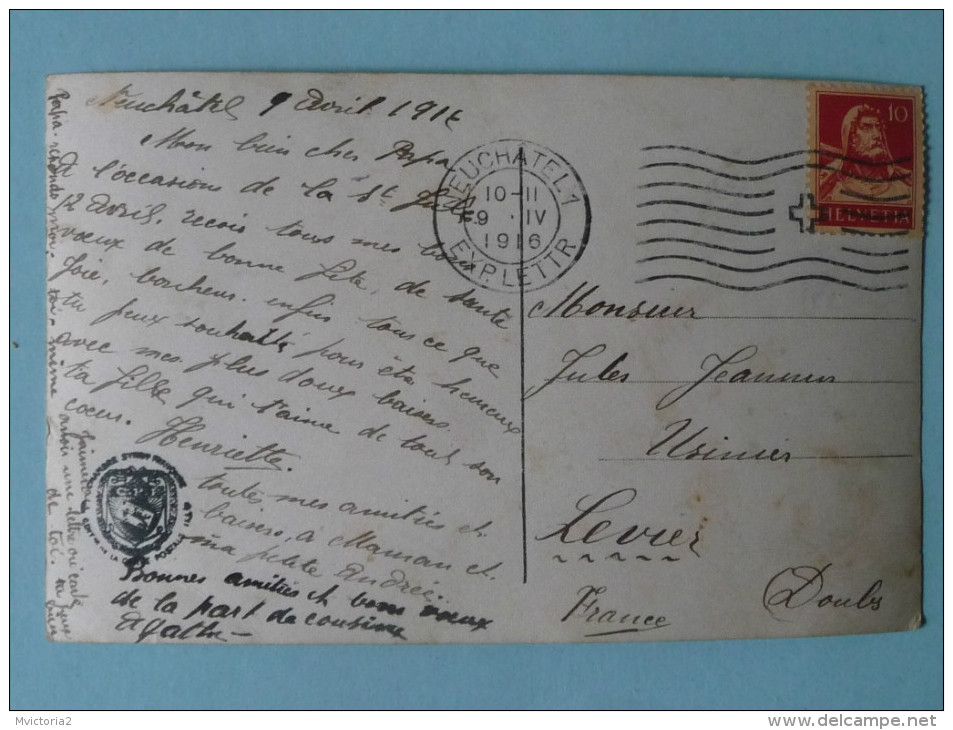 Neuchâtel 9 Avril 1916
Mon bien cher Papa
A l'occasion de la St Jules
12 Avril, reçois tous mes bons
vœux de bonne fête, de santé
joie, bonheur. enfin tous ce que
tu peux souhaité pour être heureux
avec mes plus doux baisers.
ta fille qui t'aime de tout son
cœur. Henriette.
toutes mes amitiés et
baisers, à Maman et
ma petite Andrée.
Bonnes amitiés et bons vœux
de la part de cousine
Agathe
Papa. réponds moi toi-même
une lettre ou carte
de toi.
NEUCHÂTEL 1
10-11
9 . IV
1916
EXP. LETTR.
10
HELVETIA
Monsieur
Jules Jeannin
Usinier
Levier
Doubs
France
Mvictoria2
http://www.delcampe.net